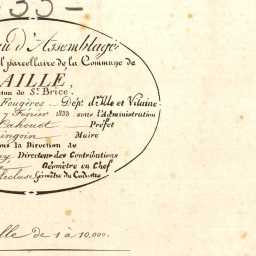 35-
d'Assemblage
parcellaire de la Commune de
AILLÉ,
de St. Brice.
Fougères Dépt. d'Ille et Vilaine
Février 1833 sous l'Administration
Cahouet Préfet
Maire
sous la Direction de
Directeur des Contributions
Géomètre en Chef
Lecluse Géomètre du Cadastre
de 1 à 10,000.